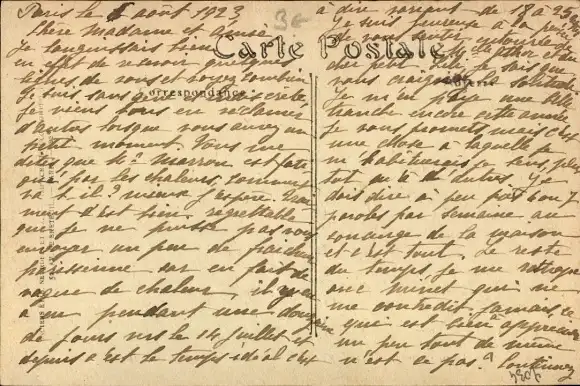 Paris le 8 août 1923
Chère Madame et Amie
Je languissais bien
en effet de recevoir quelques
lignes de vous et voyez combien
je suis sans gêne et indiscrète,
je viens vous en réclamer
d'autres lorsque vous aurez un
petit moment. Vous me
dites que Mr Marron est fati
gué par les chaleurs, comment
va-t-il? mieux j'espère. Vrai
ment c'est bien regrettable
que je ne puisse pas vous
envoyer un peu de fraicheur
parisienne car en fait de
vague de chaleur il y en
a eu pendant une dizaine
de jours vers le 14 juillet et
depuis c'est le temps idéal c'est
Carte Postale
Correspondance
Adresse
à dire variant de 18 à 25
Je suis heureuse à la pensée
de vous sentir entourée de
cher petit car je sais que
vous craignez la solitude.
Je m'en paye une belle
tranche encore cette année
je vous promets mais c'est
une chose à laquelle je
m'habituerais je sens, plus
tout qu'à d'autres. Je
dois dire à peu près 6 ou 7
paroles par semaine au
concierge de la maison
et c'est tout. Le reste
du temps je me rattrape
avec minet qui ne
me contredit jamais, ce
qui est bien à apprécier
un peu tout de même
n'est ce pas? Continuez